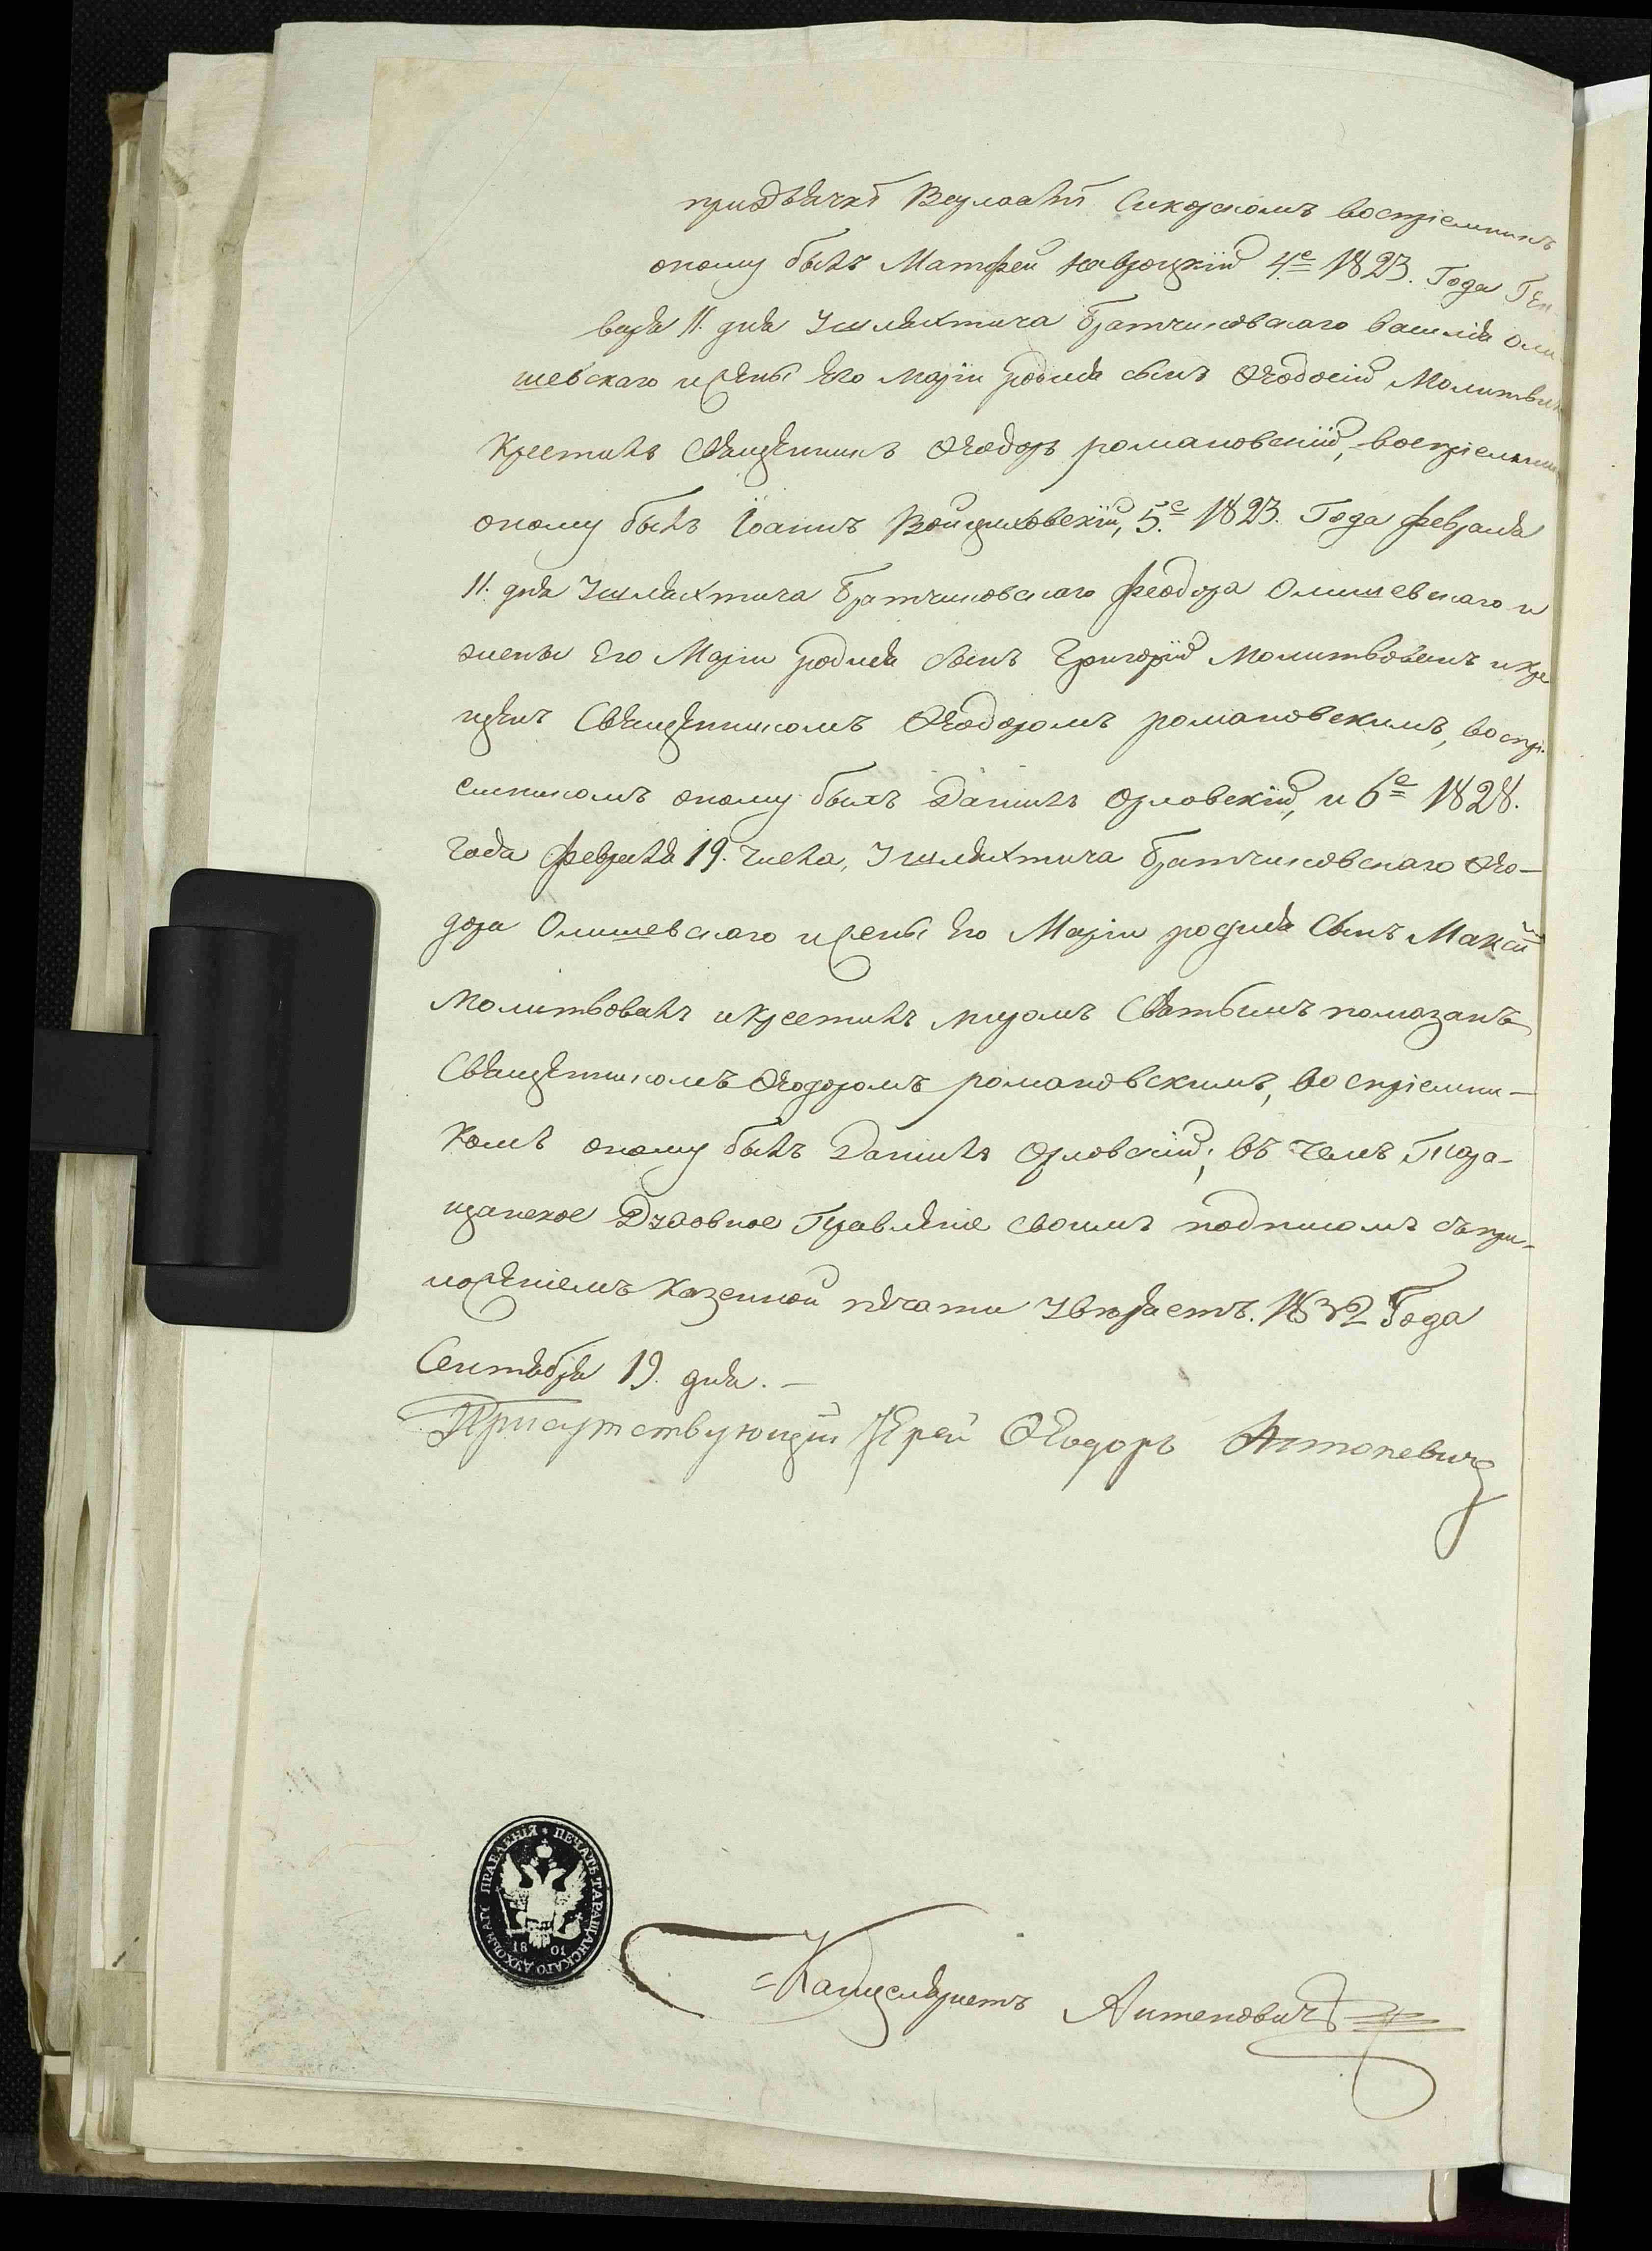 при дьячкѣ Верлаамѣ Сикорскомъ воспріемникъ
оному былъ Матфей Навроцкій 4е 1823. Года Ген
варя 11. дня У шляхтича Братчиковскаго василія Оли
шевскаго и жены Его Маріи родися сынъ Ѳеодосій, Молитвилъ
Крестилъ Священникъ Ѳеодоръ романовскій, воспріемник
оному былъ Іоаннъ Войцеховскій, 5.е 1823. Года февраля
11. дня У шляхтича Братчиковскаго Феодора Олишевскаго и
жены Его Маріи родися сынъ Григорій Молитвованъ и кре
щенъ Священникомъ Ѳеодоромъ романовскимъ, воспрі-
емникомъ оному былъ Даніилъ Орловскій, и 6е 1828.
Года февраля 19. числа, У шляхтича Братчиковскаго Ѳео-
дора Олишевскаго и жены Его Маріи родися Сынъ Максим
Молитвовалъ и крестилъ муромъ Святымъ помозанъ
Священникомъ Ѳеодоромъ романовскимъ, воспріемни-
комъ оному былъ Даніилъ Орловскій; въ чемъ Тара-
щанское Духовное Правленіе своимъ подписомъ съ при-
ложеніемъ Казенной печати Увѣряетъ. 1832 Года
Сентября 19. дня. —
Присутствующій Іерей Ѳеодоръ Антоневичъ
ПЕЧАТЬ ТАРАЩАНСКАГО ДУХОВНАГО ПРАВЛЕНІЯ
1801
Канцеляристъ Антоновичъ